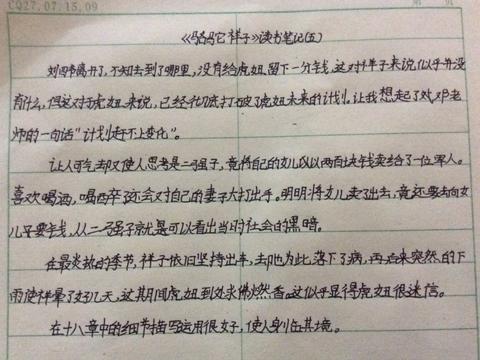 CQ27.07.15.09
《骆驼祥子》读书笔记(五)
刘四爷离开了,不知去到了哪里,没有给虎妞留下一分钱,这对祥子来说似乎并没
有什么,但这对于虎妞来说,已经彻底打破了虎妞未来的计划。让我想起了戏邓老
师的一句话“计划赶不上变化”。
让人可气却又使人思考是二强子,竟将自己的女儿以两百块钱卖给了一位军人。
喜欢喝酒,喝醉了还会对自己的妻子大打出手。明明将女儿卖了出去,竟还要去向女
儿子要钱,从二强子就是可以看出当时社会的黑暗。
在最炎热的季节,祥子依旧坚持出车,却也为此落下了病,再后来突然的下
雨使祥晕了好几天,这其期间虎妞到处求佛烧香。这似乎显得虎妞很迷信。
在十八章中的细节描写运用很好,使人身临其境。